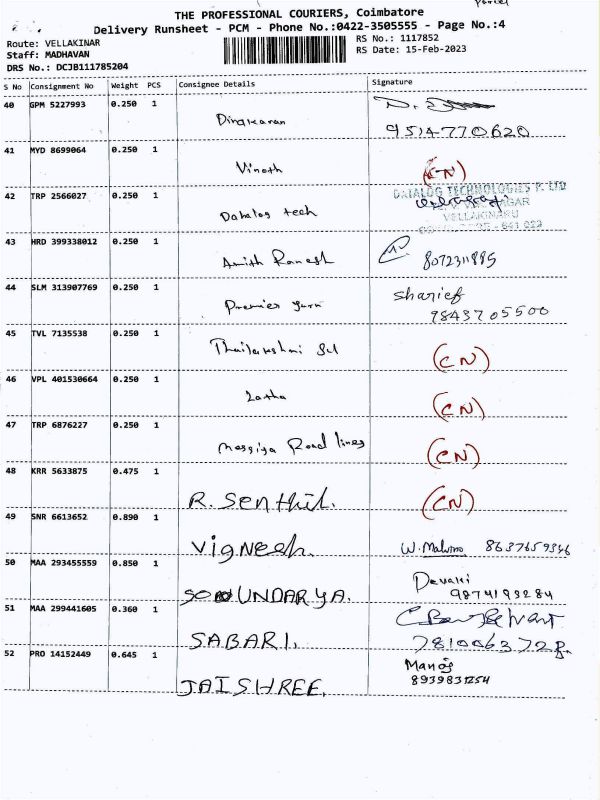 Parcel
THE PROFESSIONAL COURIERS, Coimbatore
Delivery Runsheet - PCM - Phone No.:0422-3505555 - Page No.:4
Route: VELLAKINAR
Staff: MADHAVAN
DRS No.: DCJB111785204
RS No.: 1117852
RS Date: 15-Feb-2023
S No Consignment No Weight PCS Consignee Details Signature
40 GPM 5227993 0.250 1 Dinakaran
9514770620
41 MYD 8699064 0.250 1 Vinoth (CN)
42 TRP 2566027 0.250 1 Datalog tech
DATALOG TECHNOLOGIES P. LTD
NAGAR
VELLAKINARU
641 029
43 HRD 399338012 0.250 1 Amith Ramesh 8072311885
44 SLM 313907769 0.250 1 Premier yarn Sharief
9843705500
45 TVL 7135538 0.250 1 Thailakshmi (CN)
46 VPL 401530664 0.250 1 Latha (CN)
47 TRP 6876227 0.250 1 Road lines (CN)
48 KRR 5633875 0.475 1 R. Senthil. (CN)
49 SNR 6613652 0.890 1 VigNesh. 8637659346
50 MAA 293455559 0.850 1 SOUNDARYA. Devaki
9874193284
51 MAA 299441605 0.360 1 SABARI.
7810063728
52 PRO 14152449 0.645 1 JAISHREE. Manoj
8939831254